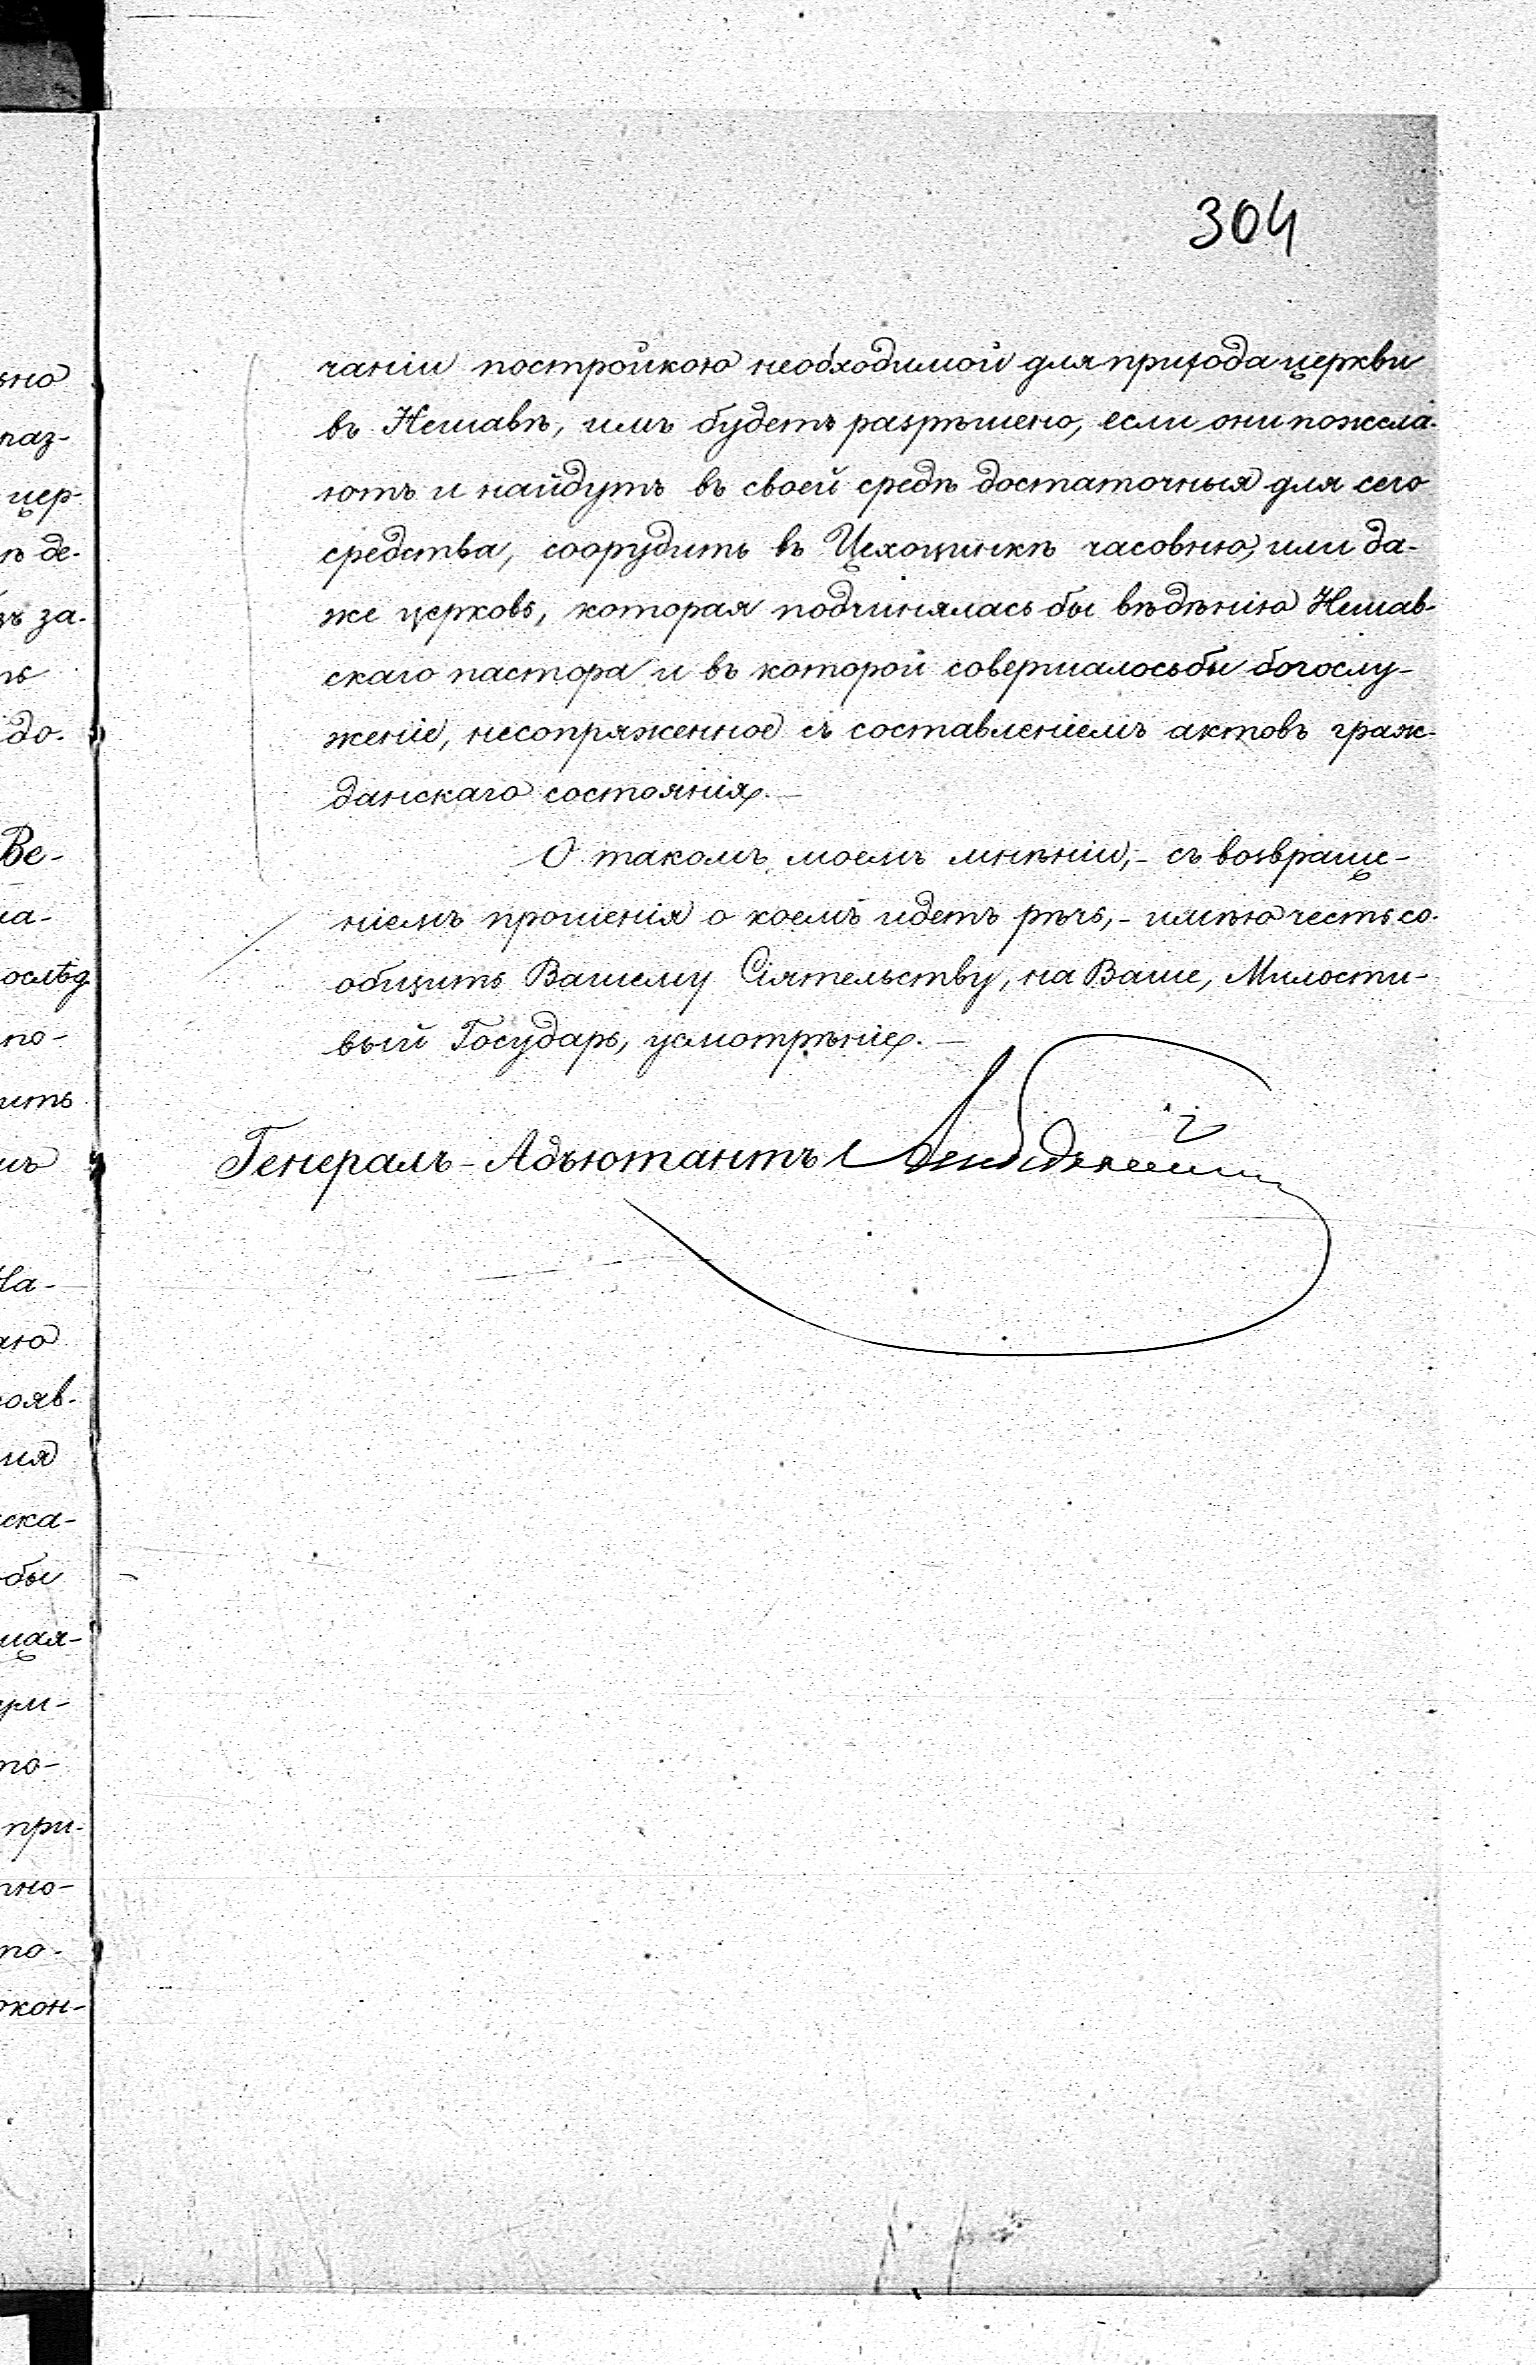 304
чаніи постройкою необходимой для прихода церкви
въ Нешавѣ, имъ будетъ разрѣшено, если они пожела-
ютъ и найдутъ въ своей средѣ достаточныя для сего
средства, соорудить въ Цехоцинкѣ часовню, или да-
же церковь, которая подчинялась бы вѣдѣнію Нешав-
скаго пастора и въ которой совершалось бы богослу-
женіе, несопряженное съ составленіемъ актовъ граж-
данскаго состоянія.—
О такомъ моемъ мнѣніи,- съ возвраще-
ніемъ прошенія о коемъ идетъ рѣчь,- имѣю честь со-
общить Вашему Сіятельству, на Ваше, Милости-
вый Государь, усмотрѣніе.—
Генералъ-Адъютантъ
ьно
раз-
цер-
ѣ де-
за-
до-
Ве-
ослѣд
по-
ить
На-
аю
ояв-
ска-
бы
щая-
при-
по-
окон-